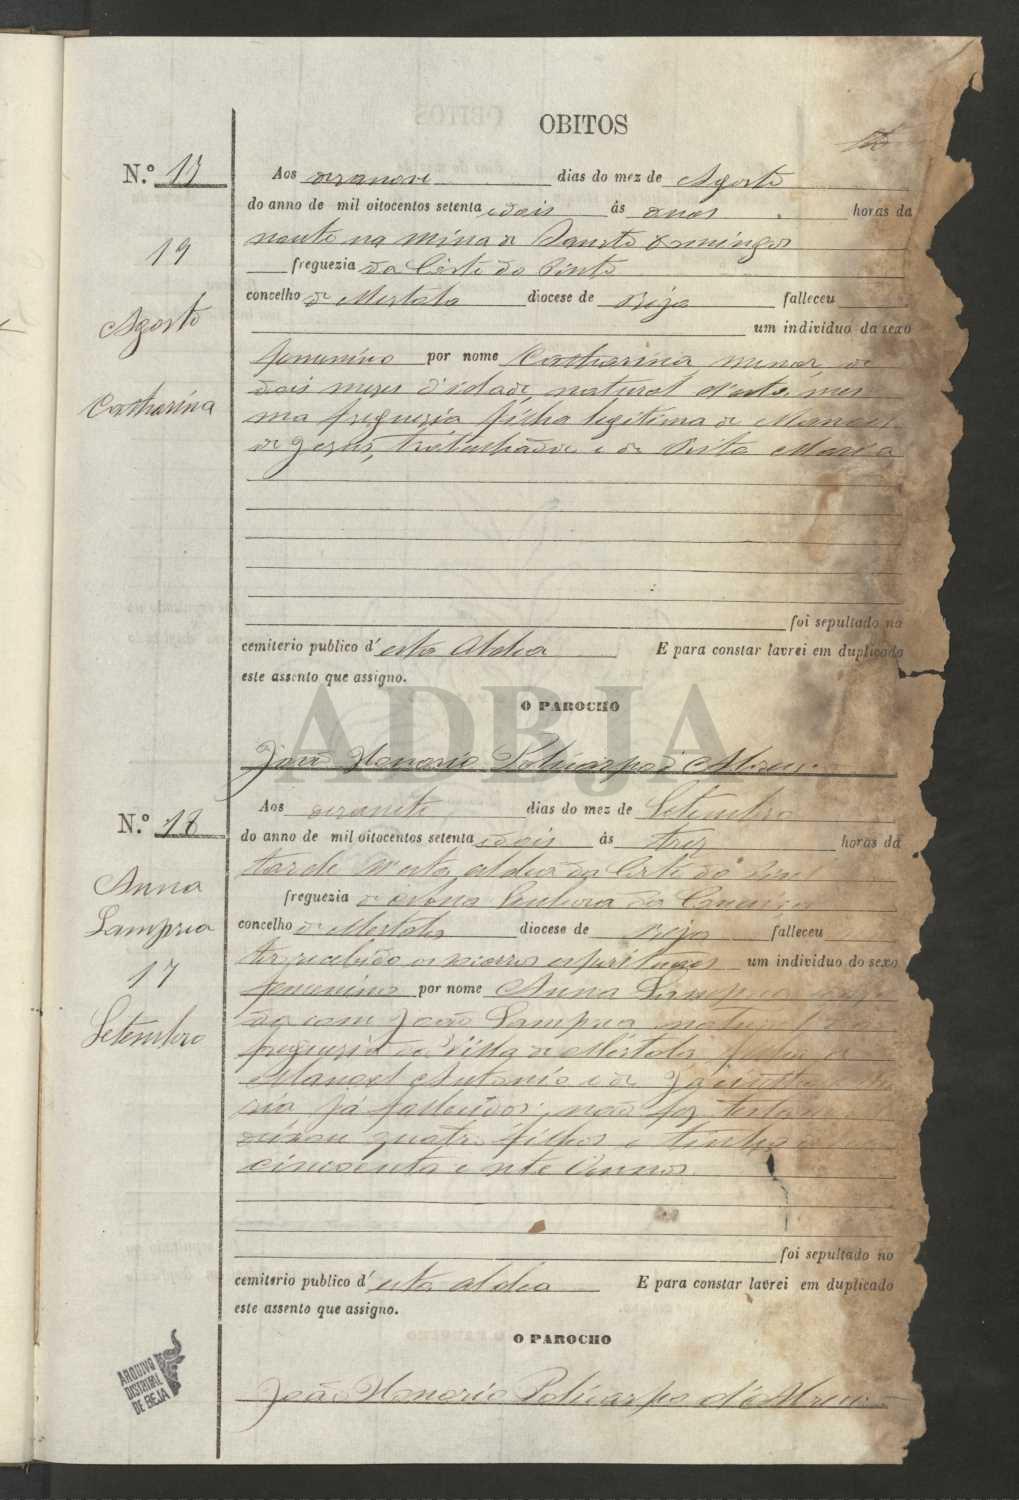 OBITOS
N.º 17
19
Agosto
Catharina
Aos desanove dias do mez de Agosto
do anno de mil oitocentos setenta e dois ás onze horas da
noute na mina de Sancto Domingos
freguezia da Corte do Pinto
concelho de Mertola diocese de Beja falleceu
um individuo da sexo
femenino por nome Catharina menor de
dois mezes d'idade, natural d'esta mes
ma freguezia filha legitima de Manoel
de Jezus, trabalhador e de Rita Maria
foi sepultado no
cemiterio publico d'esta Aldea E para constar lavrei em duplicado
este assento que assigno.
O PAROCHO
João Honorio Policarpo d'Abreu
N.º 18
Anna
Lampria
17
Setembro
Aos desasete dias do mez de Setembro
do anno de mil oitocentos setenta e dois ás tres horas da
tarde n'esta aldea da Corte do Pinto
freguezia de Nossa Senhora da Conceição
concelho de Mertola diocese de Beja falleceu
tendo recebido os socorros espirituaes um individuo do sexo
femenino por nome Anna Lampria
da com João Lampria, natural
freguezia da Villa de Mertola filha de
Manoel Antonio e de Jacintha Ma
ria já fallecidos; não fez testamento
deixou quatro filhos e tinha
cincoenta e sete annos
foi sepultado no
cemiterio publico d'esta aldea E para constar lavrei em duplicado
este assento que assigno.
O PAROCHO
João Honorio Policarpo d'Abreu
ADBJA
ARQUIVO
DISTRITAL
DE BEJA